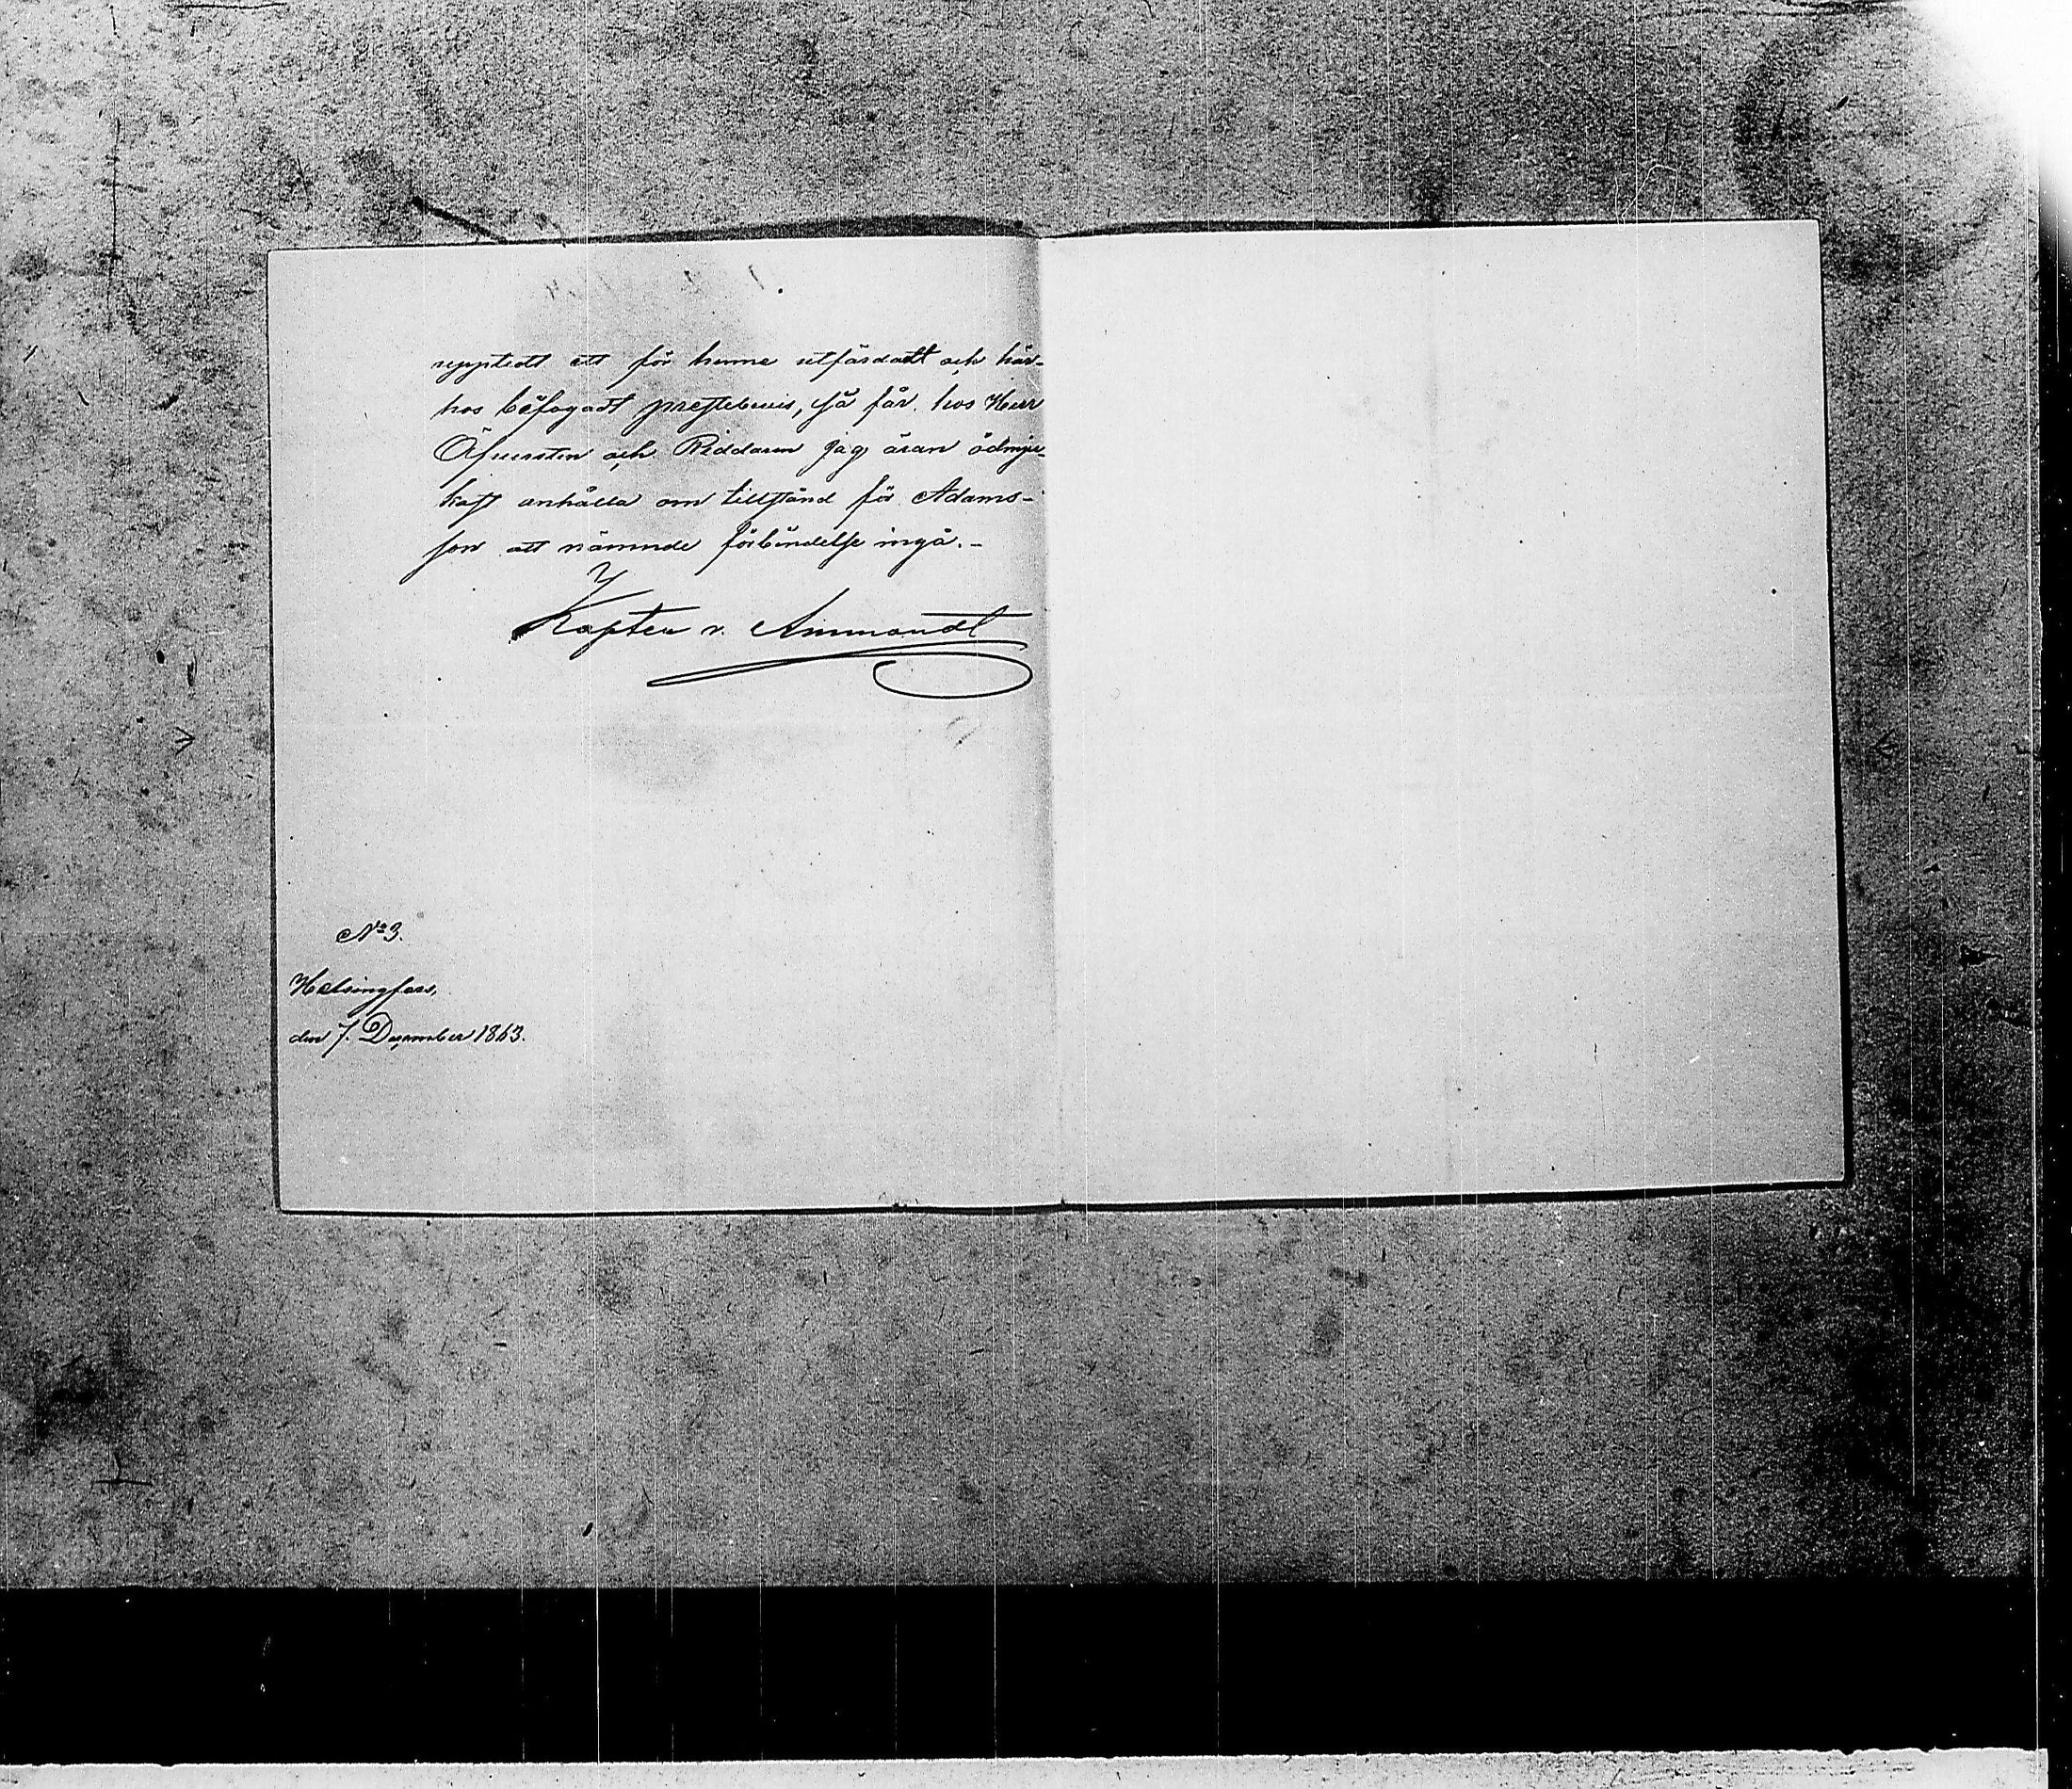 uppvist ett för henne utfärdadt och här-
hos bifogadt prestebevis, så får hos Herr
Öfversten och Riddaren jag äran ödmju-
kast anhålla om tillstånd för Adams-
son att nämnde förbindelse ingå.-
Kapten v. Ammondt
No 3.
Helsingfors,
den 7. December 1863.